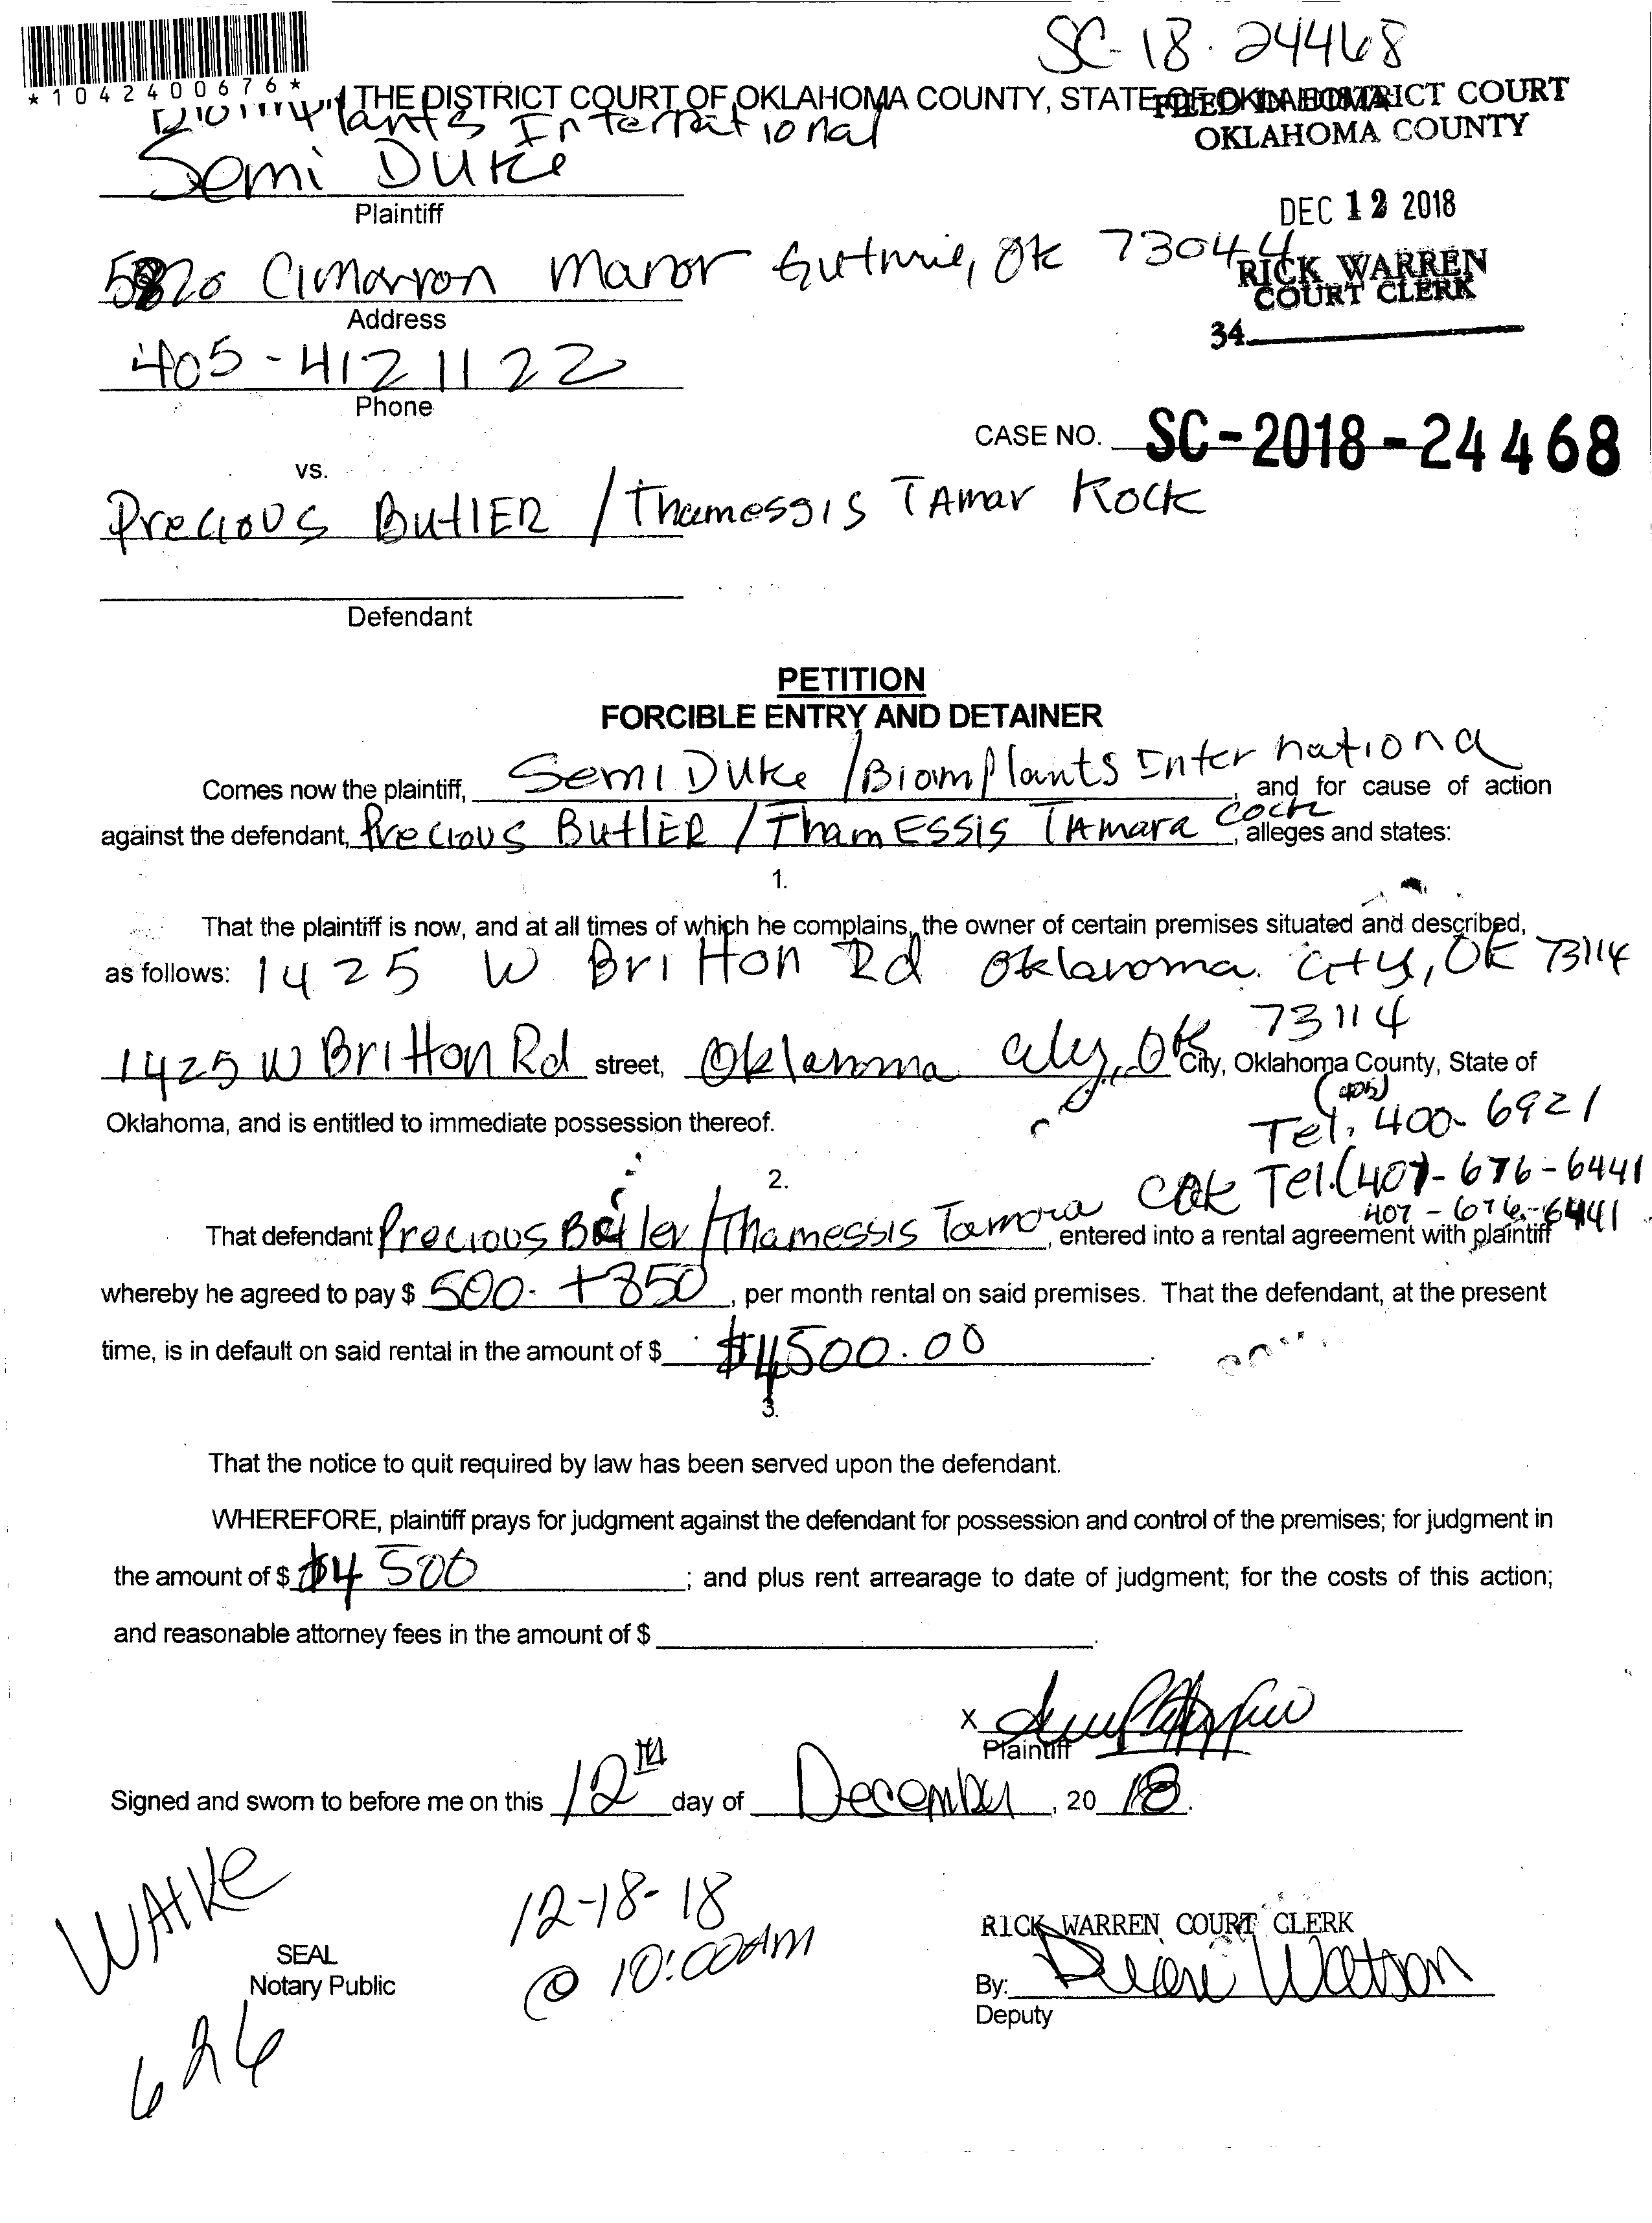 SC-18-24468
*1042400676*
THE DISTRICT COURT OF OKLAHOMA COUNTY, STATE OF OKLAHOMA
FILED IN DISTRICT COURT
OKLAHOMA COUNTY
Biomplants International
Semi Duke
Plaintiff
DEC 12 2018
5820 Cimarron Manor Guthrie, Ok 73044
RICK WARREN
COURT CLERK
Address
34
405-412 1122
Phone
CASE NO. SC-2018-24468
vs.
Precious ButlER / Thamessis TAmar Kock
Defendant
PETITION
FORCIBLE ENTRY AND DETAINER
Comes now the plaintiff, Semi Duke / Biomplants Internationa, and for cause of action
against the defendant, Precious ButlER / ThamEssis TAmara Cock, alleges and states:
1.
That the plaintiff is now, and at all times of which he complains, the owner of certain premises situated and described,
as follows: 1425 W Britton Rd Oklahoma City, OK 73114
73114
1425 W Britton Rd street, Oklahoma City, OK City, Oklahoma County, State of
Oklahoma, and is entitled to immediate possession thereof.
(405)
Tel. 400-6921
2.
Tel.(407-676-6441
407-676-6441
That defendant Precious Butler / Thamessis Tamara, entered into a rental agreement with plaintiff
whereby he agreed to pay $ 500. + 850, per month rental on said premises. That the defendant, at the present
time, is in default on said rental in the amount of $ $4500.00.
3.
That the notice to quit required by law has been served upon the defendant.
WHEREFORE, plaintiff prays for judgment against the defendant for possession and control of the premises; for judgment in
the amount of $ $4500; and plus rent arrearage to date of judgment; for the costs of this action;
and reasonable attorney fees in the amount of $
X
Plaintiff
Signed and sworn to before me on this 12TH day of December, 20 18.
WAIKE
12-18-18
@ 10:00AM
RICK WARREN COURT CLERK
SEAL
Notary Public
By: Diane Watson
Deputy
626